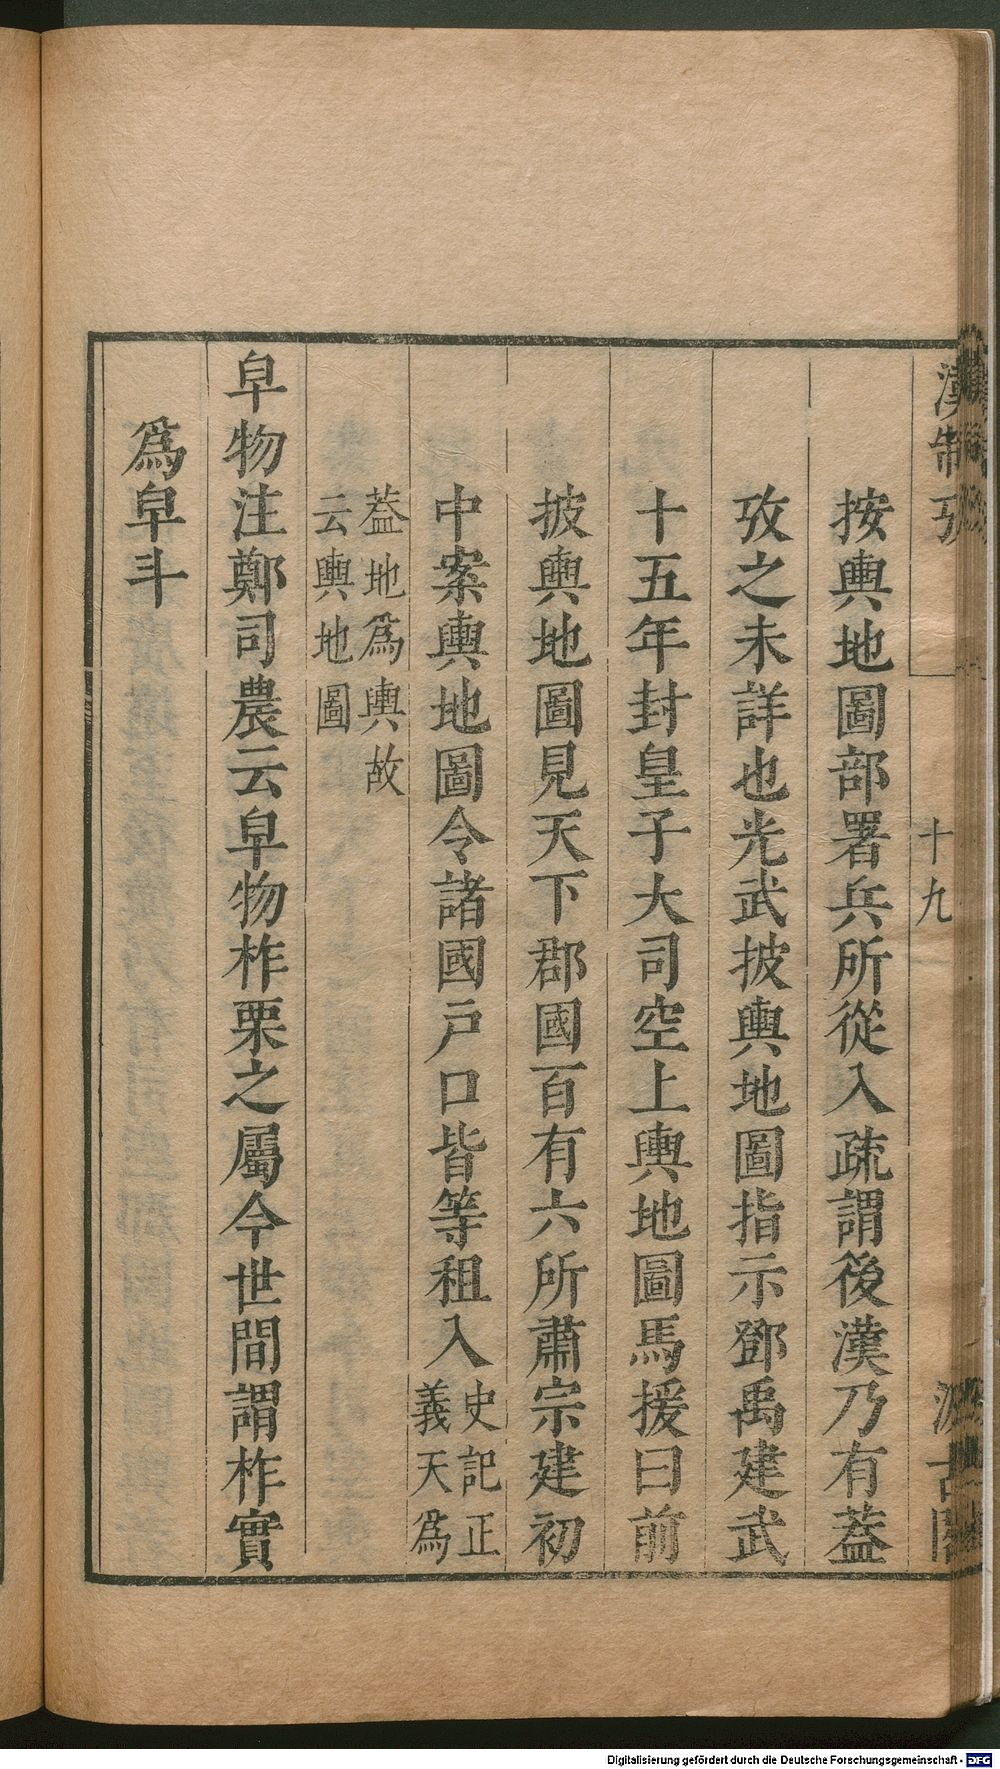 漢制攷
十九
汲古閣
按輿地圖部署兵所從入疏謂後漢乃有蓋
攷之未詳也光武披輿地圖指示鄧禹建武
十五年封皇子大司空上輿地圖馬援曰前
披輿地圖見天下郡國百有六所肅宗建初
中案輿地圖令諸國戶口皆等租入史記正義天為
蓋地為輿故云輿地圖
皁物注鄭司農云皁物柞栗之屬今世間謂柞實
為皁斗
Digitalisierung gefördert durch die Deutsche Forschungsgemeinschaft - DFG